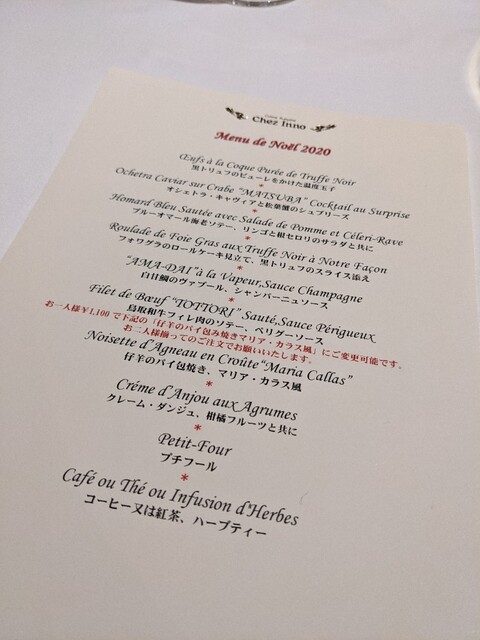 Chez Inno
Menu de Noël 2020
Œufs à la Coque Purée de Truffe Noir
黒トリュフのピューレをかけた温度玉子
*
Ochetra Caviar sur Crabe "MATSUBA" Cocktail au Surprise
オシェトラ・キャヴィアと松葉蟹のシュプリーズ
*
Homard Bleu Sautée avec Salade de Pomme et Céleri-Rave
ブルーオマール海老ソテー、リンゴと根セロリのサラダと共に
*
Roulade de Foie Gras aux Truffe Noir à Notre Façon
フォワグラのロールケーキ見立て、黒トリュフのスライス添え
*
"AMA-DAI" à la Vapeur,Sauce Champagne
白甘鯛のヴァプール、シャンパーニュソース
*
Filet de Bœuf "TOTTORI" Sauté,Sauce Périgueux
鳥取和牛フィレ肉のソテー、ペリグーソース
お一人様¥1,100で下記の「仔羊のパイ包み焼きマリア・カラス風」にご変更可能です。
お二人様揃ってのご注文でお願いいたします。
Noisette d'Agneau en Croûte "Maria Callas"
仔羊のパイ包焼き、マリア・カラス風
*
Créme d'Anjou aux Agrumes
クレーム・ダンジュ、柑橘フルーツと共に
*
Petit-Four
プチフール
*
Café ou Thé ou Infusion d'Herbes
コーヒー又は紅茶、ハーブティー